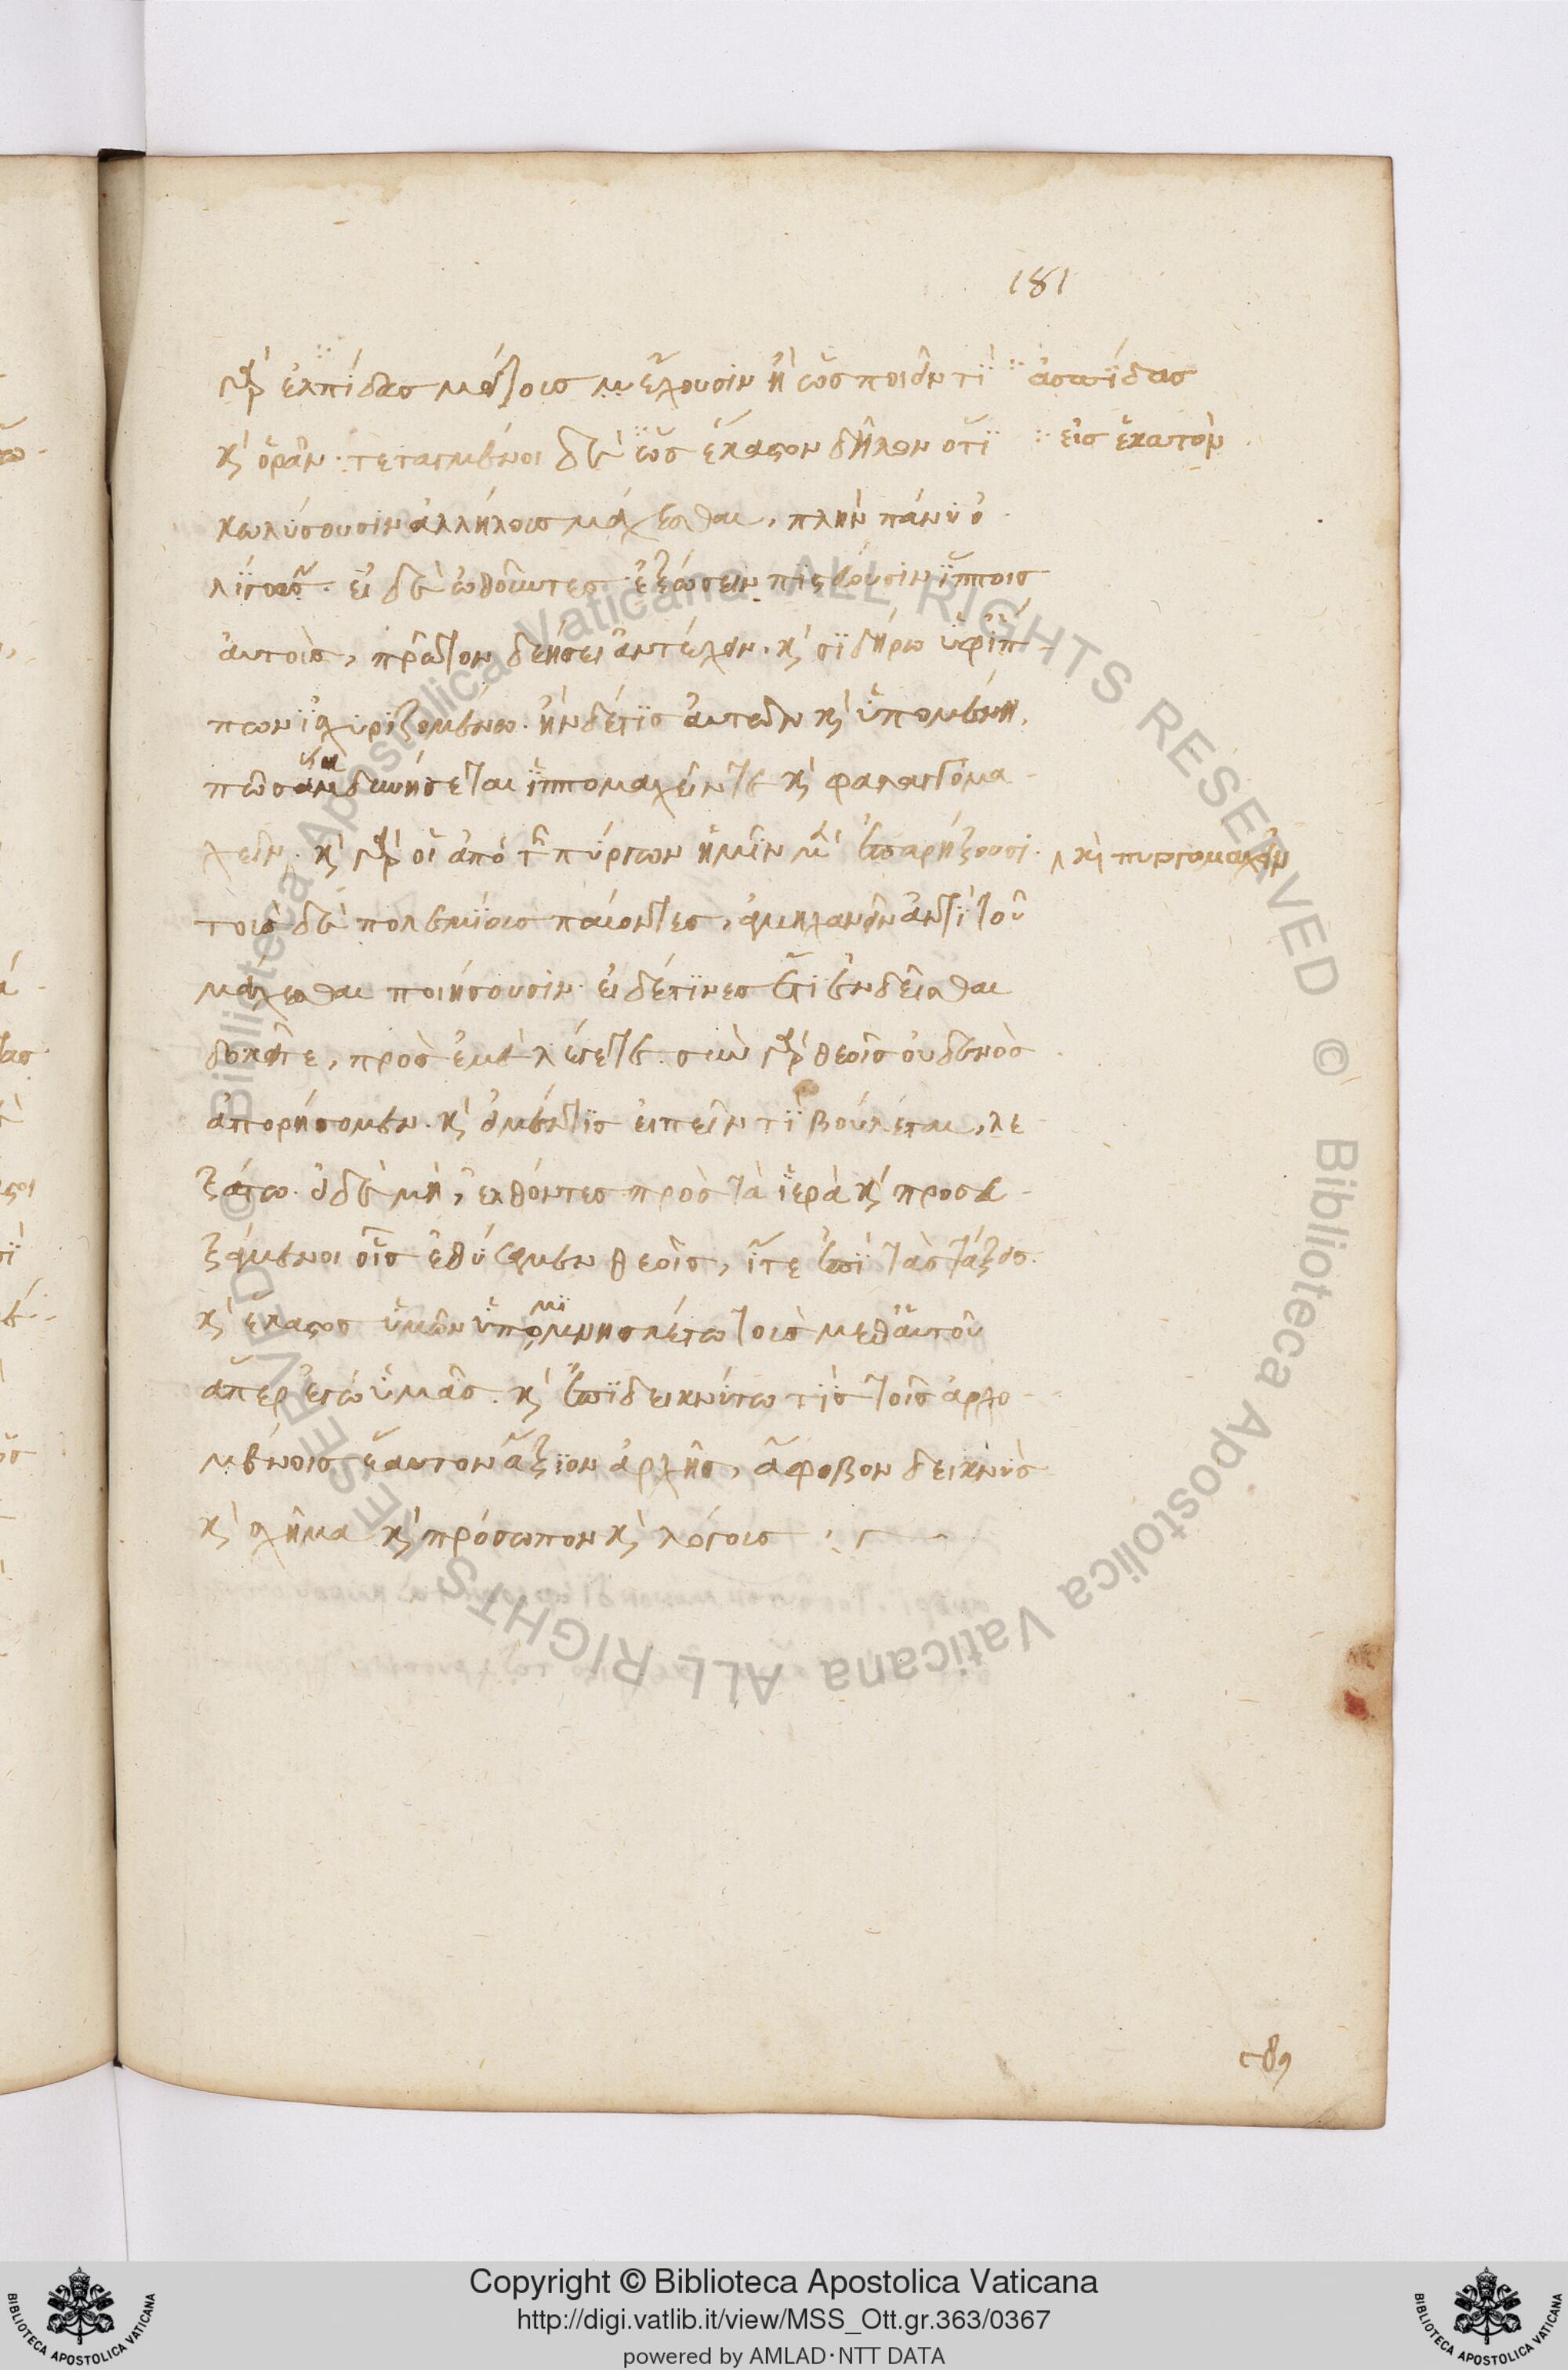 181
γὰρ ἐλπίδας μείζους ἔχουσιν ἢ ὡς ποιεῖν τὶ ⁘ ἀσπίδας
καὶ ὁρᾶν· τεταγμένοι δὲ ὡς ἕκαστον δῆλον ὅτι ⁘ εἰς ἑκατὸν
κωλύσουσιν ἀλλήλους μάχεσθαι, πλὴν πάνυ ὀ
λίγους. εἰ δὲ ὠθοῦντες ἐξώσειν πιστεύουσιν ἵπποις
αὐτοῖς, πρῶτον δεήσει ἀντέχειν. καὶ σιδήρω ὑφ' ἵπ
πων ἰσχυριζομένω. ἢν δέ τις αὐτῶν καὶ ὑπομένη,
πῶς ἂν ἅμα δυνήσεται ἱππομαχεῖν τὲ καὶ φαλαγγομα
χεῖν. καὶ γὰρ οἱ ἀπὸ τῶν πύργων ἡμῖν μὲν ἐπαρήξουσι. καὶ πυργομαχεῖν
τοὺς δὲ πολεμίους παίοντες, ἀμηχανεῖν ἀντὶ τοῦ
μάχεσθαι ποιήσουσιν. εἰ δέ τινες ἔτι ἐνδεῖσθαι
δοκεῖτε, πρὸς ἐμὲ λέγετε. σὺν γὰρ θεοῖς οὐδενὸς
ἀπορήσομεν. καὶ εἰ μέν τις εἰπεῖν τὶ βούλεται, λε
ξάτω. εἰ δὲ μὴ, ἐλθόντες πρὸς τὰ ἱερὰ καὶ προσευ
ξάμενοι οἷς ἐθύσαμεν θεοῖς, ἴτε ἐπὶ τὰς τάξεις.
καὶ ἕκαστος ὑμῶν ὑπομιμνησκέτω τοὺς μεθ' αὑτοῦ
ἅπερ ἐγὼ ὑμᾶς. καὶ ἐπιδεικνύτω τὶς τοῖς ἀρχο
μένοις ἑαυτὸν ἄξιον ἀρχῆς, ἄφοβον δεικνὺς
καὶ σχῆμα καὶ πρόσωπον καὶ λόγους :
Copyright © Biblioteca Apostolica Vaticana
http://digi.vatlib.it/view/MSS_Ott.gr.363/0367
powered by AMLAD·NTT DATA